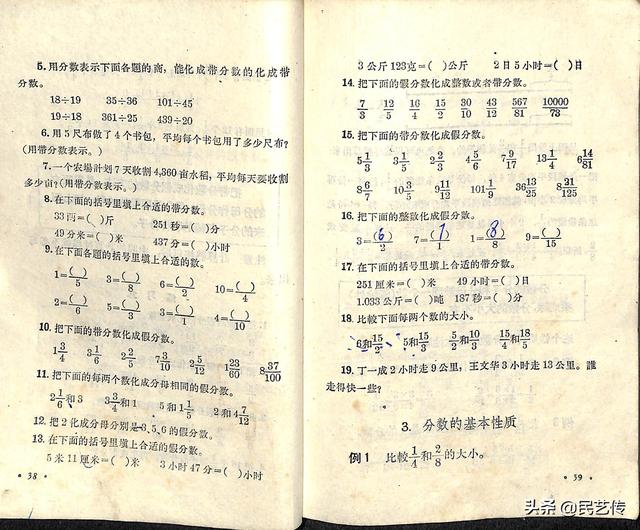 5. 用分数表示下面各題的商，能化成带分数的化成带
分数。
18÷19 35÷36 101÷45
19÷18 361÷25 439÷20
6. 用5尺布做了4个书包，平均每个书包用了多少尺布？
(用带分数表示。)
7. 一个农場計划7天收割4,360亩水稻，平均每天要收割
多少亩？(用带分数表示。)
8. 在下面的括号里填上合适的带分数。
33两=( )斤 251秒=( )分
49分米=( )米 437分=( )小时
9. 在下面各题的括号里填上合适的数。
1=( )/5 3=( )/8 6=( )/2 10=( )/4
2=( )/6 5=( )/3 3=( )/1 4=( )/10
10. 把下面的带分数化成假分数。
1 3/4 3 1/6 2 2/5 7 3/10 2 5/12 1 23/60 8 37/100
11. 把下面的每两个数化成分母相同的假分数。
2 1/6和3 3 3/4和1 5和1 1/5 2和4 7/12
12. 把2化成分母分别是3、5、6的假分数。
13. 在下面的括号里填上合适的假分数。
5米11厘米=( )米 3小时47分=( )小时
• 38 •
3公斤123克=( )公斤 2日5小时=( )日
14. 把下面的假分数化成整数或者带分数。
7/3 12/5 16/4 15/2 30/10 43/12 567/81 10000/73
15. 把下面的带分数化成假分数。
5 1/3 3 1/5 2 2/3 4 5/6 7 9/17 13 1/4 6 14/81
8 6/7 10 3/5 9 11/12 101 1/9 36 13/25 8 21/125
16. 把下面的整数化成假分数。
3=(6)/2 7=(7)/1 1=(8)/8 9=( )/15
17. 在下面的括号里填上合适的带分数。
251厘米=( )米 49小时=( )日
1.033公斤=( )吨 187秒=( )分
18. 比較下面每两个数的大小。
6和15/2 5和15/3 5/2和10/3 15/4和18/5
19. 丁一成2小时走9公里，王文华3小时走13公里。誰
走得快一些？
3. 分数的基本性质
例1 比較1/4和2/8的大小。
• 39 •
头条 @民艺传